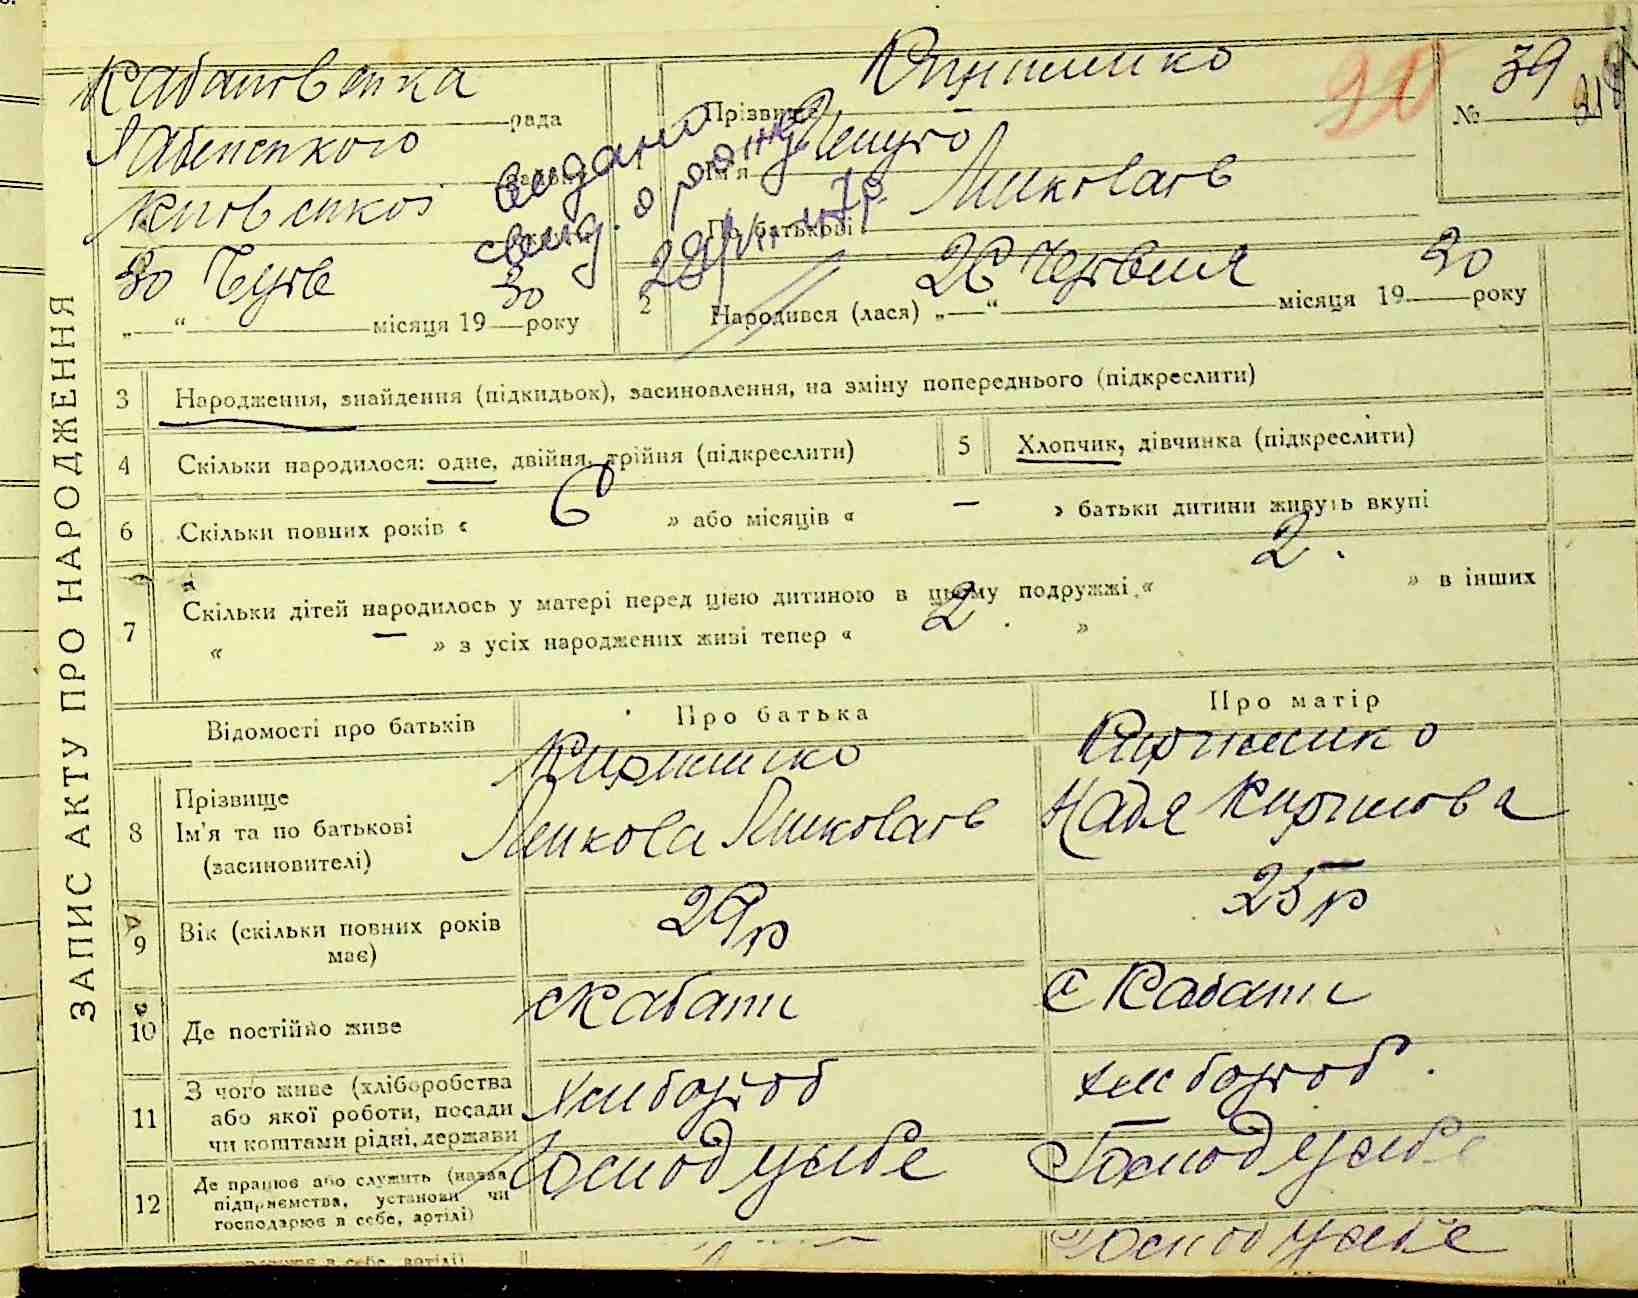 ЗАПИС АКТУ ПРО НАРОДЖЕННЯ
рада
видано
свид. о рожд
30 Черв 30
„—“ місяця 19 — року
Прізвище
Ім'я
По батькові Миколаєв
№ 39
20
2 Народився (лася) „26“ Червня місяця 1930 року
3 Народження, знайдення (підкидьок), засиновлення, на зміну попереднього (підкреслити)
4 Скільки народилося: одне, двійня, трійня (підкреслити)
5 Хлопчик, дівчинка (підкреслити)
6 Скільки повних років « 6 » або місяців « — » батьки дитини живуть вкупі
7 Скільки дітей народилось у матері перед цією дитиною в цьому подружжі « 2. » в інших
« — » з усіх народжених живі тепер « 2. »
Відомості про батьків Про батька Про матір
8 Прізвище
Ім'я та по батькові Микола Миколаєв Надя
(засиновителі)
9 Вік (скільки повних років має) 29 р 25 р
10 Де постійно живе с Кабани с Кабани
11 З чого живе (хліборобства або якої роботи, посади чи коштами рідні, держави хлібороб хлібороб.
12 Де працює або служить (назва підприємства, установи чи господарює в себе, артілі) Господ у себе Господ у себе
Господ у себе